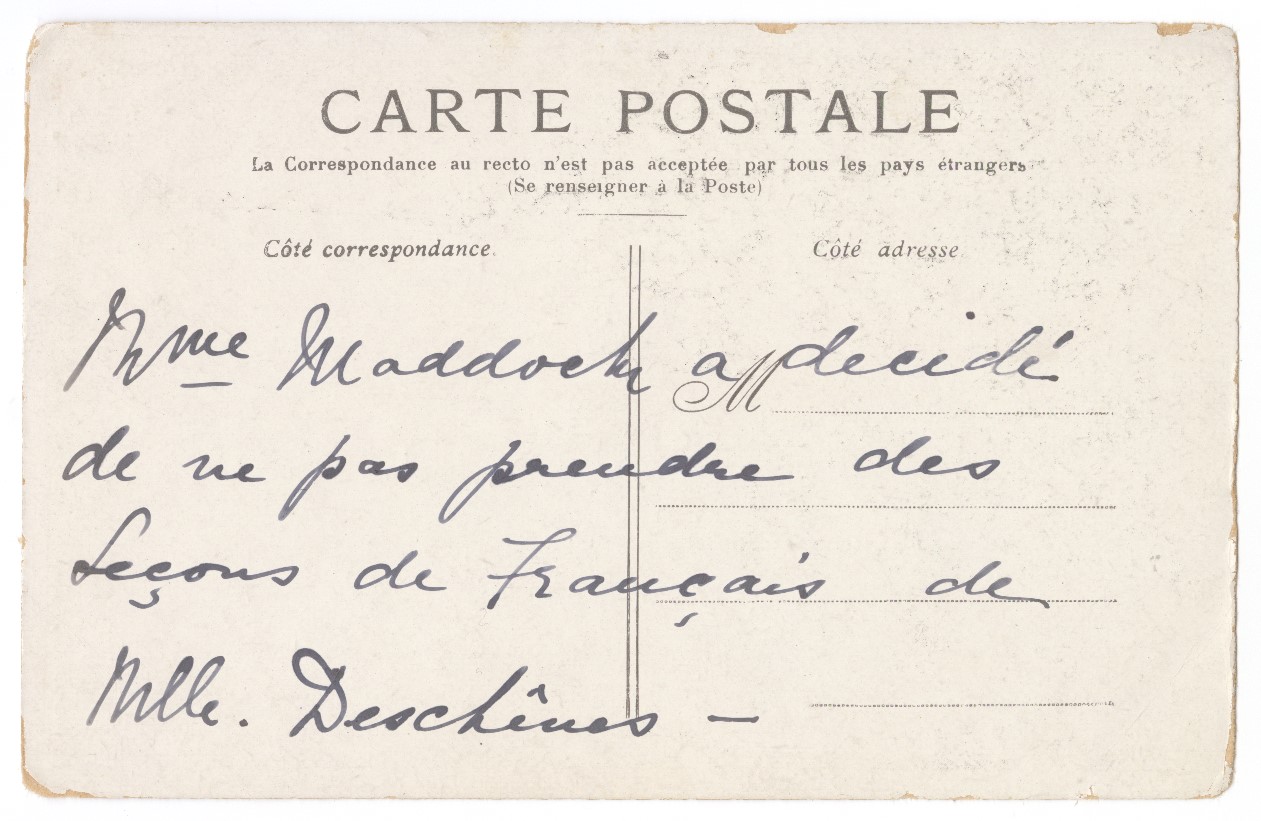 CARTE POSTALE
La Correspondance au recto n'est pas acceptée par tous les pays étrangers
(Se renseigner à la Poste)
Côté correspondance.
Côté adresse
M
Mme Maddock a decidé
de ne pas prendre des
Leçons de Français de
Mlle. Deschênes —